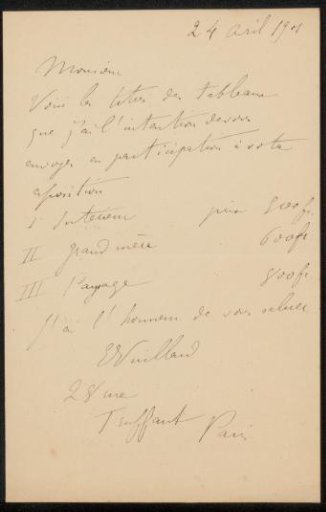 24 avril 1901
Monsieur
Voici les titres des tableaux
que j'ai l'intention de vous
envoyer en participation à votre
exposition
I Intérieur prix 500 f
II grand mère 600 f
III Paysage 800 f
J'ai l'honneur de vous saluer
E Vuillard
28 rue
Truffaut Paris